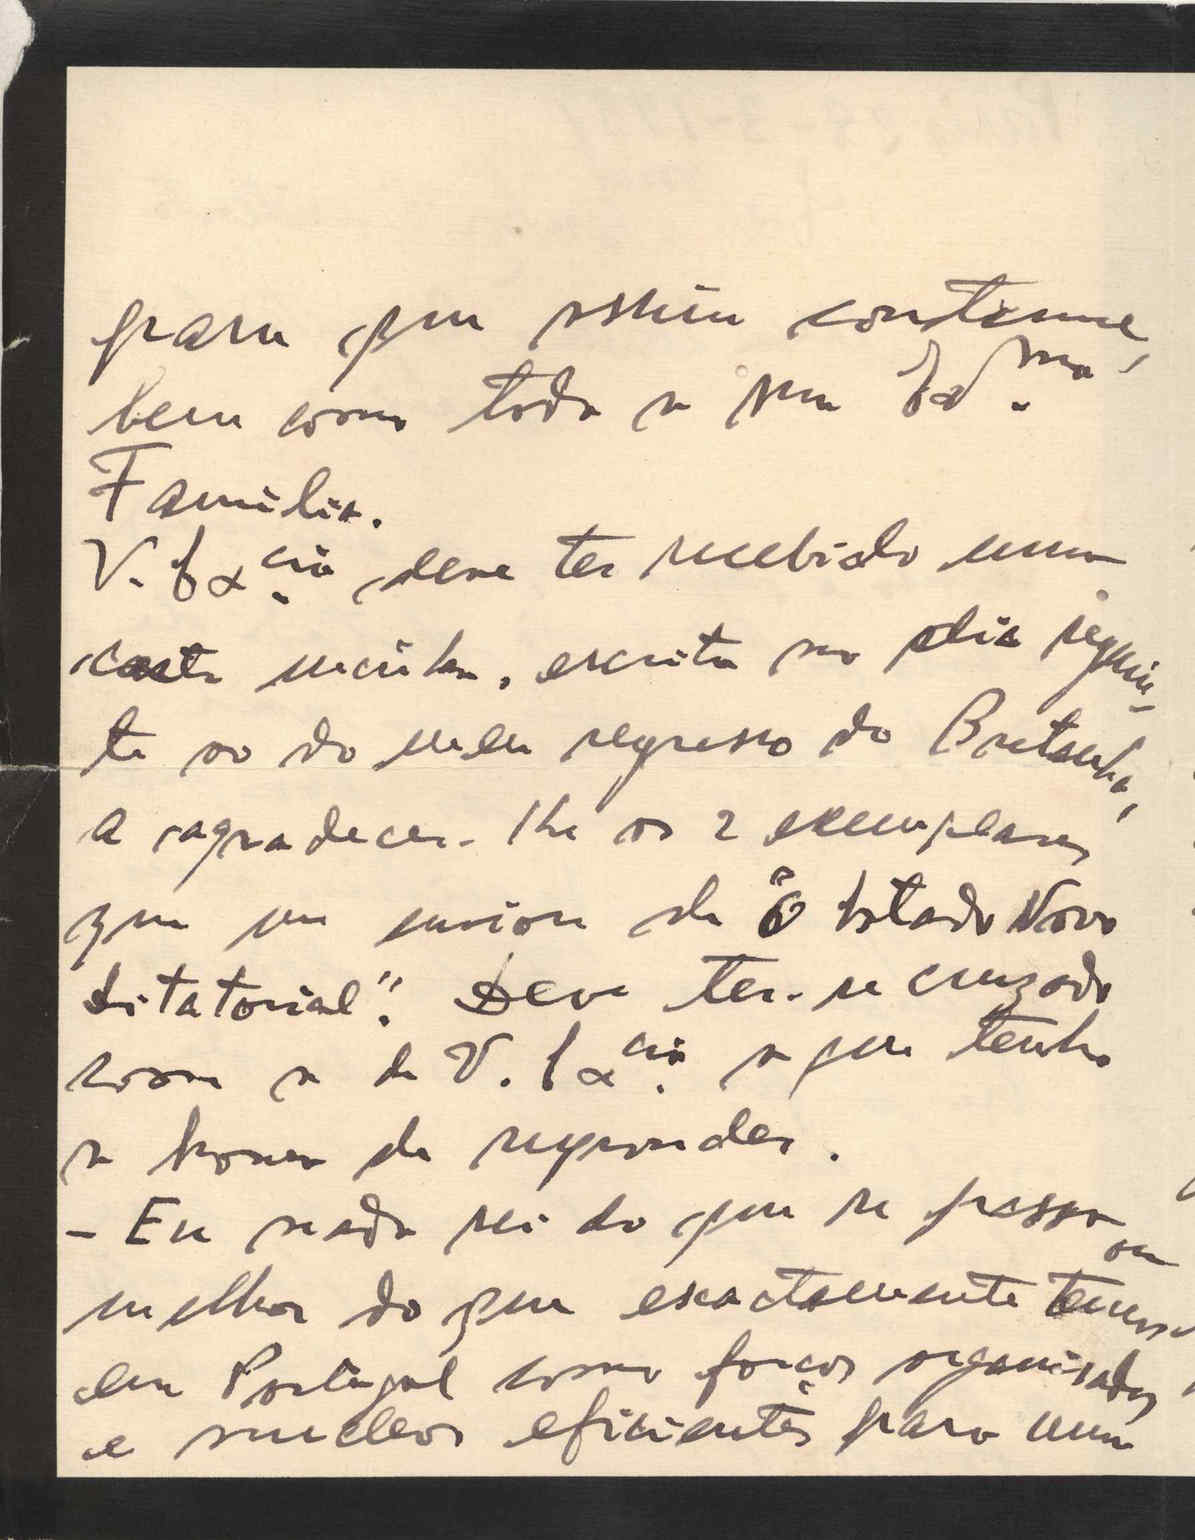 para que assim continue,
bem como toda a sua Exma.
Familia.
V. Excia. deve ter recebido uma
carta minha, escrita no dia seguin-
te ao do meu regresso da Bretanha,
a agradecer-lhe os 2 exemplares
que me enviou de "O Estado Novo
Ditatorial". Deve ter-se cruzado
com a de V. Excia. a que tenho
a honra de responder.
- Eu nada sei do que se passa ou
melhor do que exactamente temos
em Portugal como forças organisadas
e nucleos eficientes para uma